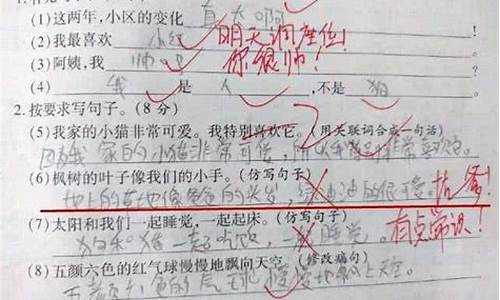 (1)这两年,小区的变化 真大啊
(2)我最喜欢 小红 明天调座位!
(3)阿姨,我 帅吧 你很帅!
(4) 我 是 人 ,不是 狗
2.按要求写句子。(8 分)
(5)我家的小猫非常可爱。我特别喜欢它。(用关联词合成一句话)
因为我家的小猫非常可爱,所以我特别非常喜欢它。
(6)枫树的叶子像我们的小手。(仿写句子)
地上的草地像爸爸的头发,绿油油的很可爱。抗命!
(7)太阳和我们一起睡觉,一起起床。(仿写句子)
狗和猪一起吃饭,一起睡觉。 有点常识!
(8)五颜六色的红气球慢慢地飘向天空。(修改病句)
五颜六色的气球慢慢地飘上天空。